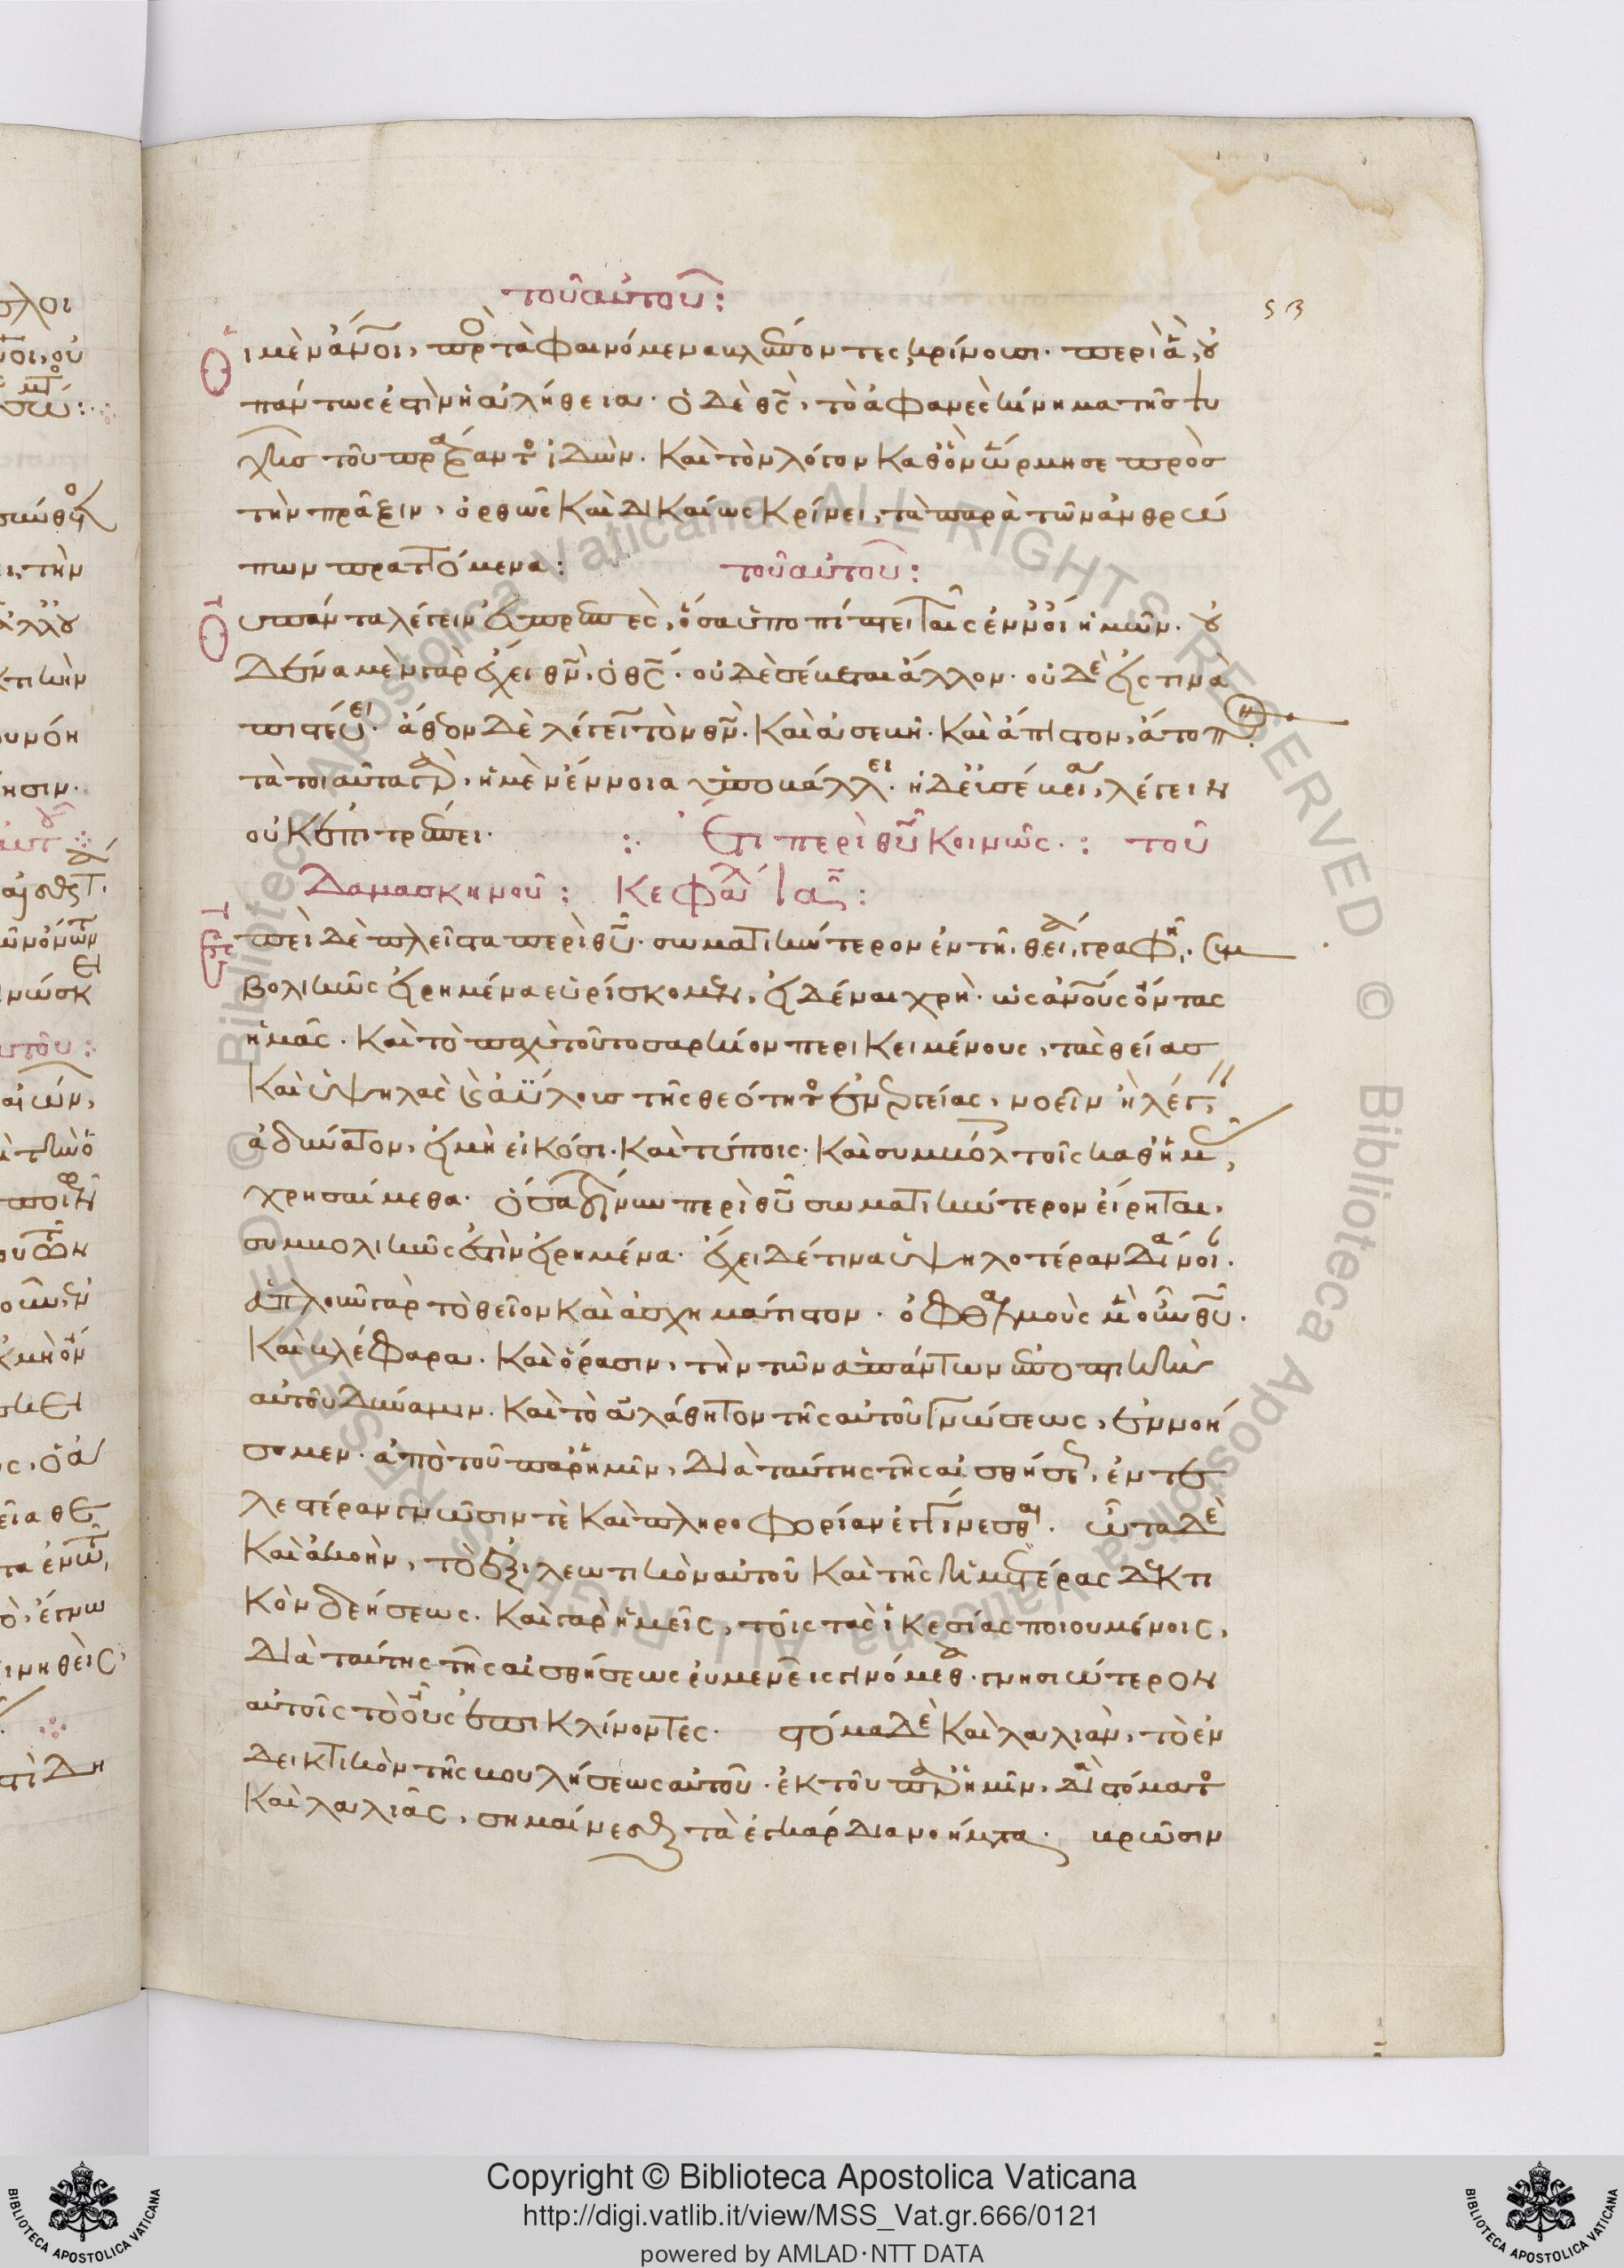 τοῦ αὐτοῦ:
53
Οἱ μὲν ἄνοι, πρὸς τὰ φαινόμενα βλέποντες κρίνουσι. περὶ ἃ, οὐ
πάντως ἐστὶν ἡ ἀλήθεια. ὁ δὲ θς, τὸ ἀφανὲς κίνημα τῆς ψυ
χῆς τοῦ πράξαντος ἰδὼν. καὶ τὸν λόγον καθ' ὃν ὥρμησε πρὸς
τὴν πρᾶξιν, ὀρθῶς καὶ δικαίως κρίνει, τὰ παρὰ τῶν ἀνθρώ
πων πραττόμενα: τοῦ αὐτοῦ:
Οὐ πάντα λέγειν εὐπρεπὲς, ὅσα ὑποπίπτει ταῖς ἐννοίαις ἡμῶν. οὐ
δένα μὲν γὰρ ἔχει θν, ὁ θς. οὐδὲ σέβεται ἄλλον. οὐδὲ εἴς τινα
πιστεύει. ἄθεον δὲ λέγειν τὸν θν. καὶ ἀσεβῆ. καὶ ἄπιστον, ἄτοπον.
τὰ τοιαῦτα γὰρ, ἡ μὲν ἔννοια ὑποβάλλει. ἡ δὲ εὐσέβεια, λέγειν
οὐκ ἐπιτρέπει. :. Ἔτι περὶ θυ κοινῶς. : τοῦ
Δαμασκηνοῦ: κεφάλ ια:
Ἐπεὶ δὲ πλεῖστα περὶ θυ. σωματικώτερον ἐν τῆ θείᾳ γραφῆ, συμ
βολικῶς εἰρημένα εὑρίσκομεν, εἰδέναι χρὴ. ὡς ἀνους ὄντας
ἡμᾶς. καὶ τὸ παχὺ τοῦτο σαρκίον περικειμένους, τὰς θείας
καὶ ὑψηλὰς καὶ ἀΰλους τῆς θεότητος ἐνεργείας, νοεῖν ἢ λέγειν,
ἀδύνατον, εἰ μὴ εἰκόσι. καὶ τύποις. καὶ συμβόλοις τοῖς καθ' ἡμᾶς,
χρησαίμεθα. ὅσα τοίνυν περὶ θυ σωματικώτερον εἴρηται,
συμβολικῶς ἐστὶν εἰρημένα. ἔχει δέ τινα ὑψηλοτέραν διάνοιαν.
ἁπλοῦν γὰρ τὸ θεῖον καὶ ἀσχημάτιστον. ὀφθαλμοὺς μὲν οὖν θυ.
καὶ βλέφαρα. καὶ ὅρασιν, τὴν τῶν ἁπάντων ἐποπτικὴν
αὐτοῦ δύναμιν. καὶ τὸ ἀλάθητον τῆς αὐτοῦ γνώσεως, ἐννοή
σομεν. ἀπὸ τοῦ παρ' ἡμῖν, διὰ ταύτης τῆς αἰσθήσεως, ἐντε
λεστέραν γνῶσίν τε καὶ πληροφορίαν ἐγγίνεσθαι. ὦτα δὲ
καὶ ἀκοὴν, τὸ ἐξιλεωτικὸν αὐτοῦ καὶ τῆς ἡμετέρας δεκτι
κὸν δεήσεως. καὶ γὰρ ἡμεῖς, τοῖς τὰς ἱκεσίας ποιουμένοις,
διὰ ταύτης τῆς αἰσθήσεως εὐμενεῖς γινόμεθα. γνησιώτερον
αὐτοῖς τὸ οὖς ἐπικλίνοντες. στόμα δὲ καὶ λαλιὰν, τὸ ἐν
δεικτικὸν τῆς βουλήσεως αὐτοῦ. ἐκ τοῦ παρ' ἡμῖν, διὰ στόματος
καὶ λαλιᾶς, σημαίνεσθαι τὰ ἐγκάρδια νοήματα. βρῶσιν
Copyright © Biblioteca Apostolica Vaticana
http://digi.vatlib.it/view/MSS_Vat.gr.666/0121
powered by AMLAD·NTT DATA